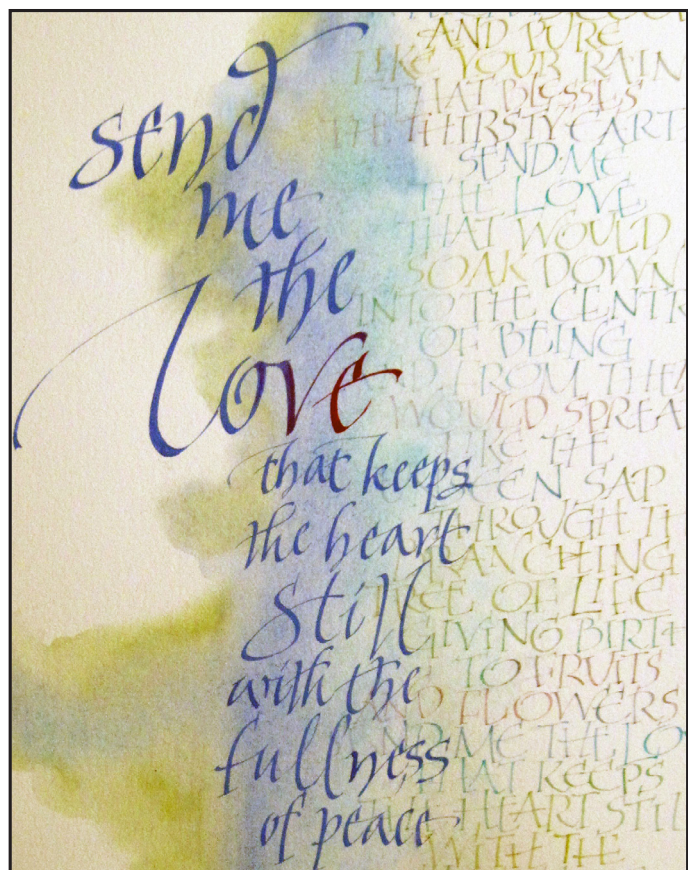 send
me
the
love
that keeps
the heart
still
with the
fullness
of peace
AND PURE
LIKE YOUR RAIN
THAT BLESSES
THE THIRSTY EARTH
SEND ME
THE LOVE
THAT WOULD
SOAK DOWN
INTO THE CENTR
OF BEING
AND FROM THER
WOULD SPREA
LIKE THE
EEN SAP
THROUGH TH
BRANCHING
TREE OF LIFE
GIVING BIRTH
TO FRUITS
AND FLOWERS
SEND ME THE LO
THAT KEEPS
THE HEART STILL
WITH THE